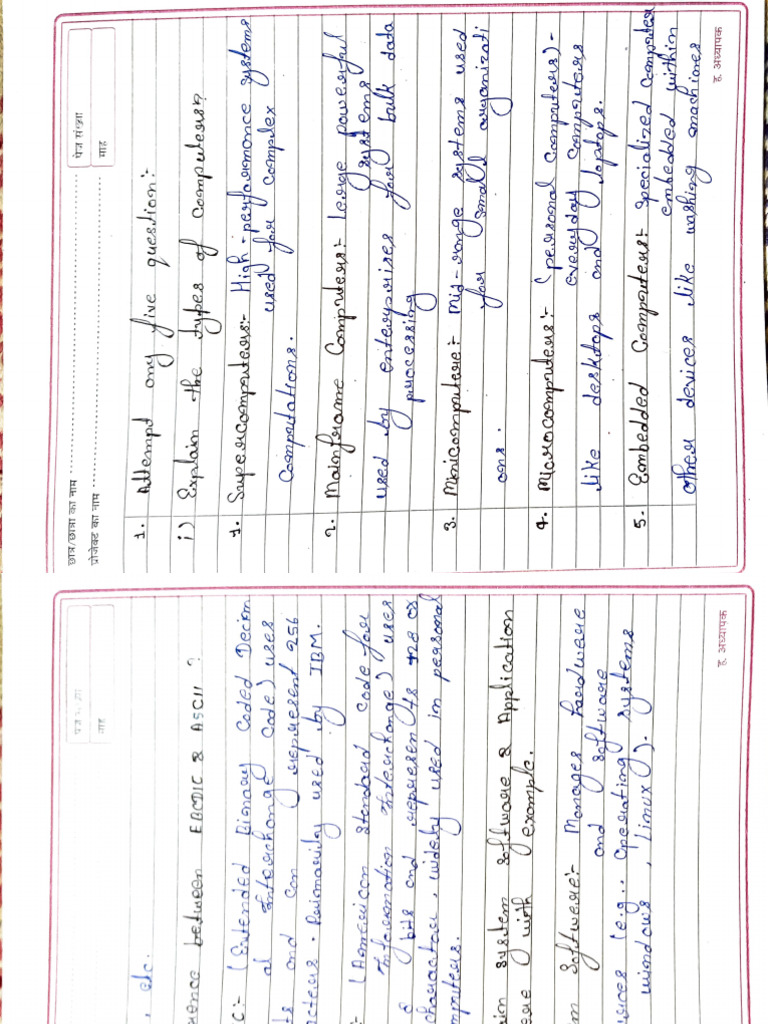 छात्र/छात्रा का नाम
पेज संख्या
प्रोजेक्ट का नाम
माह
1. Attempt any five question:-
i) Explain the types of computers?
1. Supercomputers:- High-performance systems
used for complex
Computations.
2. Mainframe Computers:- Large powerful
systems
used by enterprises for bulk data
processing
3. Minicomputers:- Mid-range systems used
for small organizati
ons.
4. Microcomputers:- (personal computers)-
everyday computers
like desktops and laptops.
5. Embedded Computers:- specialized computer
embedded within
other devices like washing machines
ह. अध्यापक
, etc.
between EBCDIC & ASCII ?
(Extended Binary Coded Decim
al Interchange Code) uses
and can represent 256
. Primarily used by IBM.
(American standard code for
Information Interchange) uses
bits and represents
character, widely used in personal
system software & Application
with example.
software:- Manages hardware
and software
(e.g., operating systems
windows, Linux).
ह. अध्यापक